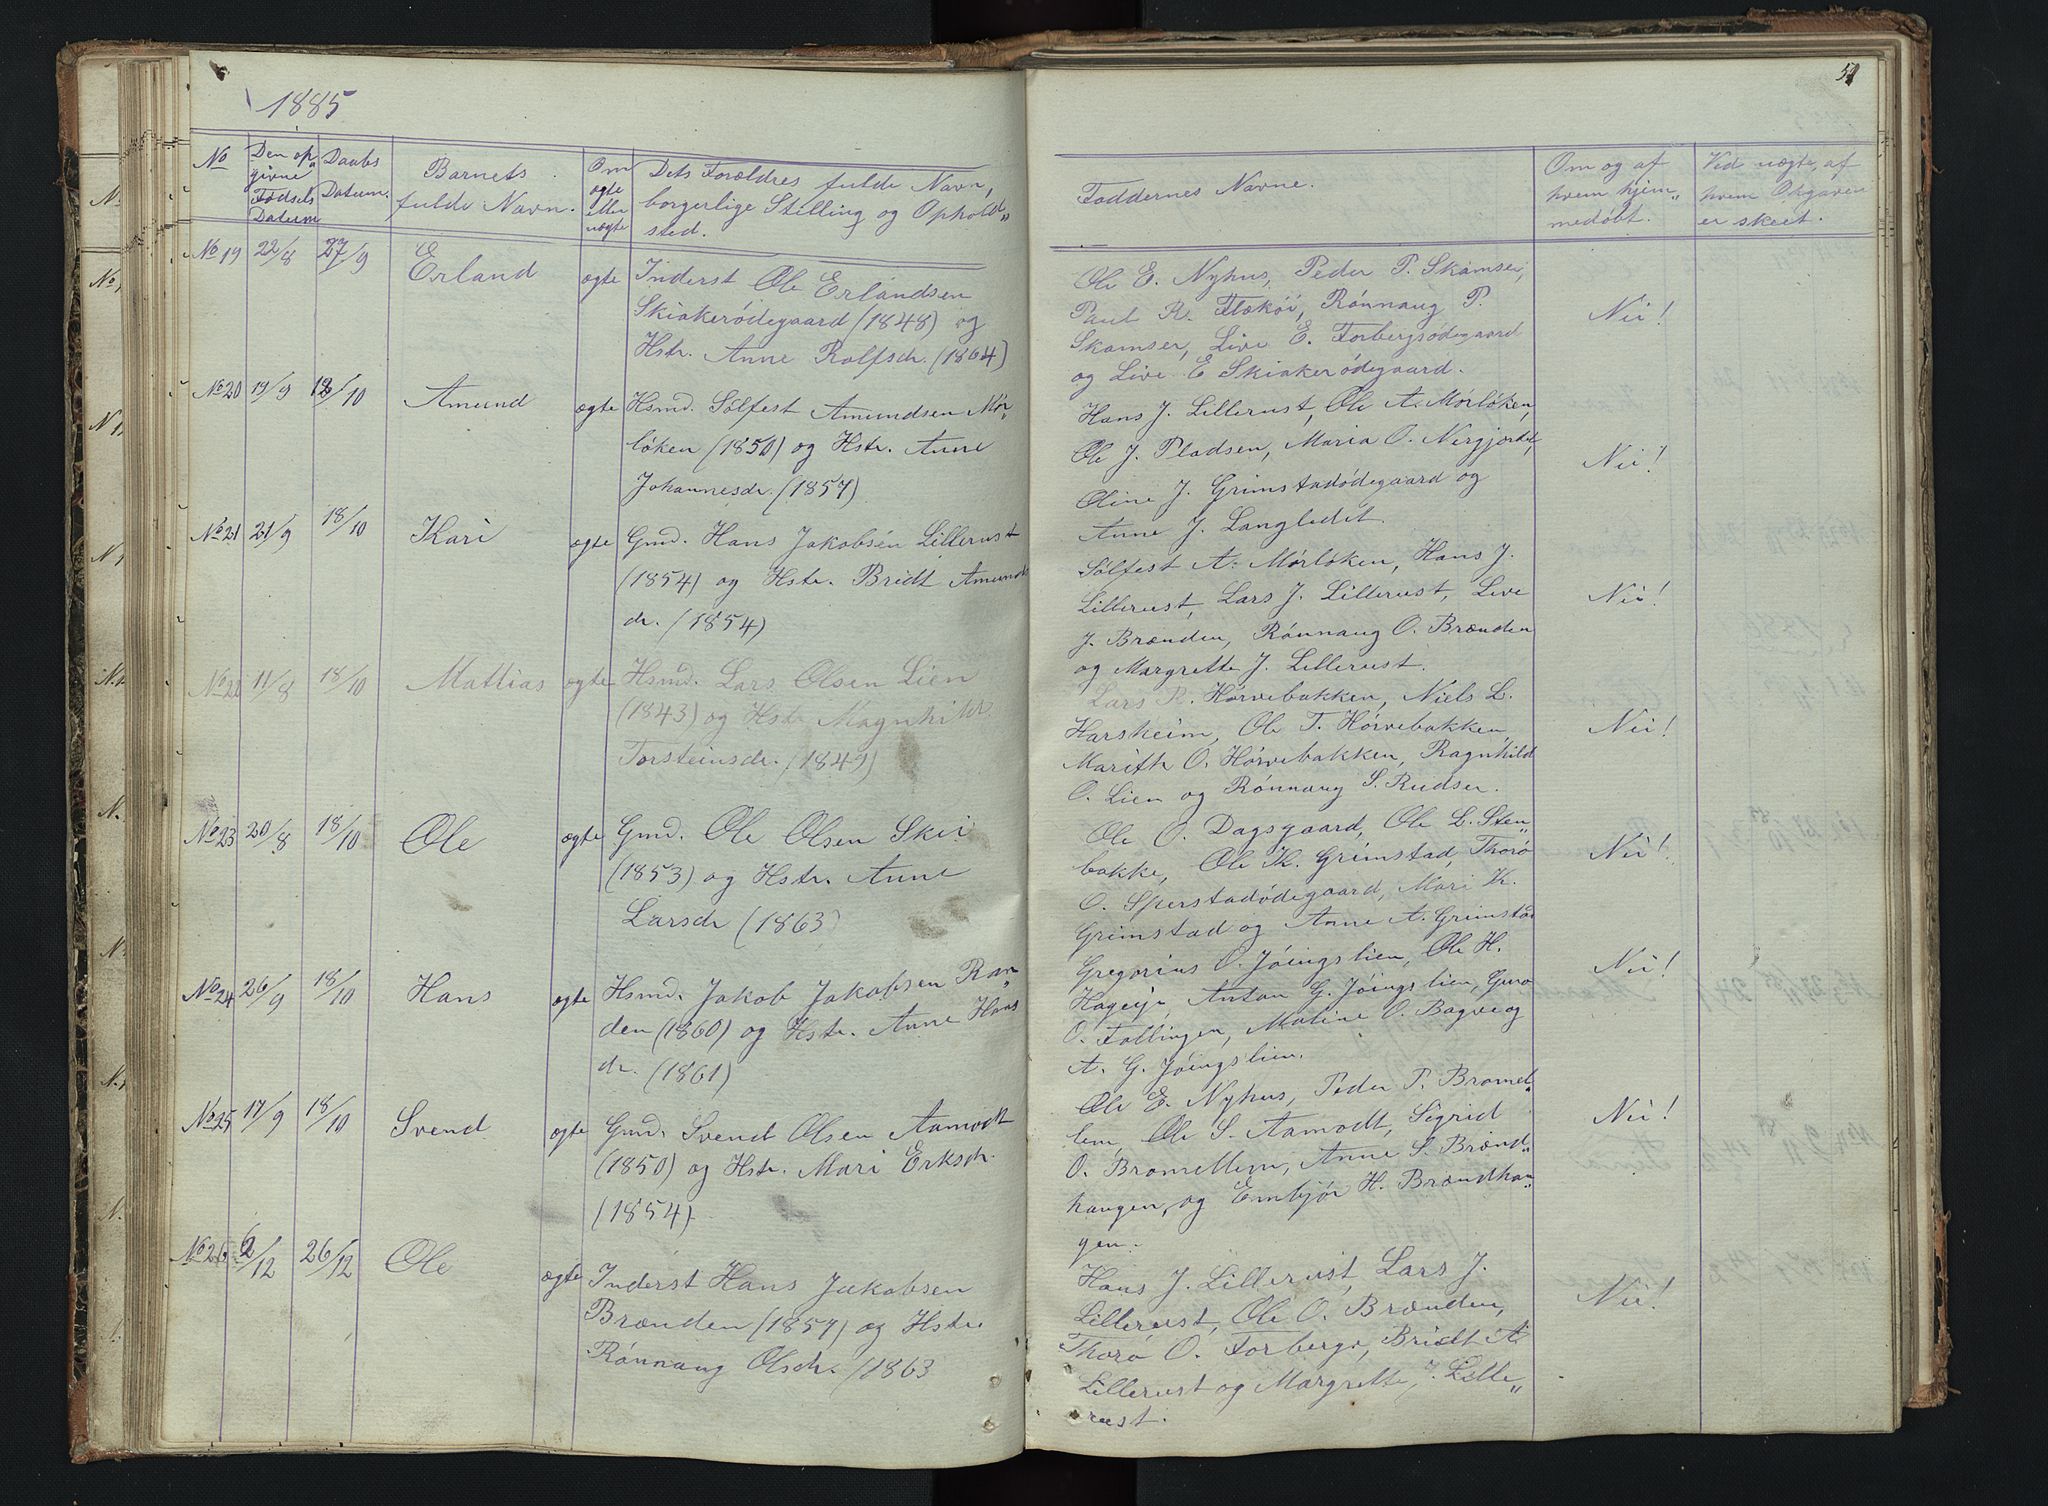 1885
51
No
Den op„
givne
Fødsels
Datum
Daabs
Datum.
Barnets
fulde Navn.
Om
ægte
eller
uægte
Dets Forældres fulde Navn,
borgerlige Stilling og Ophold„
sted.
Faddernes Navne.
Om og af
hvem hjem„
medøbt.
Ved uægte, af
hvem Opgaven
er skeet.
No 19 22/8 27/9 Erland ægte Inderst Ole Erlandsen
Skiakerødegaard (1848) og
Hstr. Anne Rolfsdr. (1864)
Ole E. Nyhus, Peder P. Skamser,
Paul R. Flækøi, Rønnaug P.
Skamser, Live E. Forbergsødegaard
og Live E Skiakerødegaard.
Nei!
No 20 19/9 18/10 Amund ægte Hsmd. Sølfest Amundsen Mør„
løken (1850) og Hstr. Anne
Johannesdr. (1857)
Hans J. Lillerust, Ole A. Mørløken,
Ole J. Pladsen, Maria O. Nergjordet,
Oline J. Grimstadødegaard og
Anne J. Langledet.
Nei!
No 21 21/9 18/10 Kari ægte Gmd. Hans Jakobsen Lillerust
(1854) og Hstr. Bridt Amunds
dr. (1854)
Sølfest A. Mørløken, Hans J.
Lillerust, Lars J. Lillerust, Live
J. Brænden, Rønnaug O. Brænden
og Margrette J. Lillerust.
Nei!
No 22 11/8 18/10 Mattias ægte Hsmd. Lars Olsen Lien
(1843) og Hstr. Magnhild
Torsteinsdr. (1849)
Lars R. Hørvebakken, Niels L.
Harsheim, Ole T. Hørvebakken,
Marith O. Hørvebakken, Ragnhild
O. Lien og Rønnaug S. Rudser.
Nei!
No 23 20/8 18/10 Ole ægte Gmd. Ole Olsen Skei
(1853) og Hstr. Anne
Larsdr (1863)
Ole O. Dagsgaard, Ole L. Sten„
bakke, Ole K. Grimstad, Thorø
O. Sperstadødegaard, Mari K.
Grimstad og Anne A. Grimstad
Nei!
No 24 26/9 18/10 Hans ægte Hsmd. Jakob Jakobsen Ran„
den (1860) og Hstr. Anne Hans
dr. (1861)
Gregorius O. Jøingslien, Ole H.
Hageeje, Antan G. Jøingslien, Guro
O. Follingen, Matine O. Bagve og
A. G. Jøingslien.
Nei!
No 25 17/9 18/10 Svend ægte Gmd. Svend Olsen Aamodt
(1850) og Hstr. Mari Erksdr.
(1854).
Ole E. Nyhus, Peder P. Bramel„
lem, Ole S. Aamodt, Sigrid
O. Bramellem, Anne S. Brænd„
haugen, og Embjør H. Brændhau„
gen.
Nei!
No 26 2/12 26/12 Ole ægte Inderst Hans Jakobsen
Brænden (1857) og Hstr.
Rønnaug Olsdr. (1863
Hans J. Lillerust, Lars J.
Lillerust, Ole O. Brænden,
Thorø O. Forberge, Bridt A
Lillerust og Margrette J. Lille„
rust.
Nei!